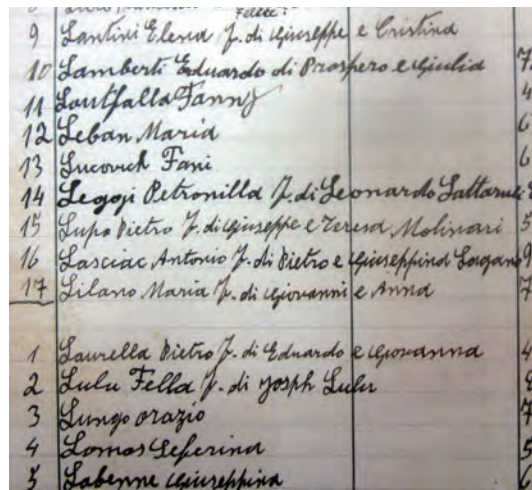 9 Lantini Elena f. di Giuseppe e Cristina
10 Lamberti Eduardo di Prospero e Giulia 7
11 Loutfalla Fanny 4
12 Leban Maria 6
13 Lucovich Fani 6
14 Leggi Petronilla f. di Leonardo
15 Lupo Pietro f. di Giuseppe e Teresa Molinari 5
16 Lasciac Antonio f. di Pietro e Giuseppina 9
17 Lilano Maria f. di Giovanni e Anna 7
1 Laurella Pietro f. di Eduardo e Giovanna 4
2 Lulu Fella f. di Joseph Lulu
3 Lungo Orazio 7
4 Lomos Seferina 5
5 Labenne Giuseppina